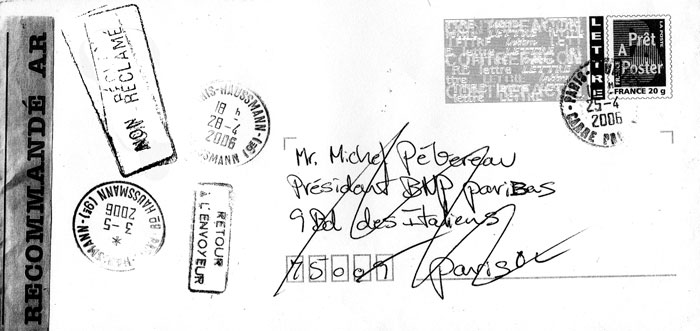 RECOMMANDÉ AR
NON RÉCLAMÉ
18 h
28-4
2006
HAUSSMANN (9E)
3-5
2006
HAUSSMANN (9E)
RETOUR
À L'ENVOYEUR
LETTRE
Prêt
À
Poster
LA POSTE
FRANCE 20 g
PARIS
25-4
2006
Mr. Michel Pébereau
Président BNP paribas
9 Bd des Italiens
75009 Paris